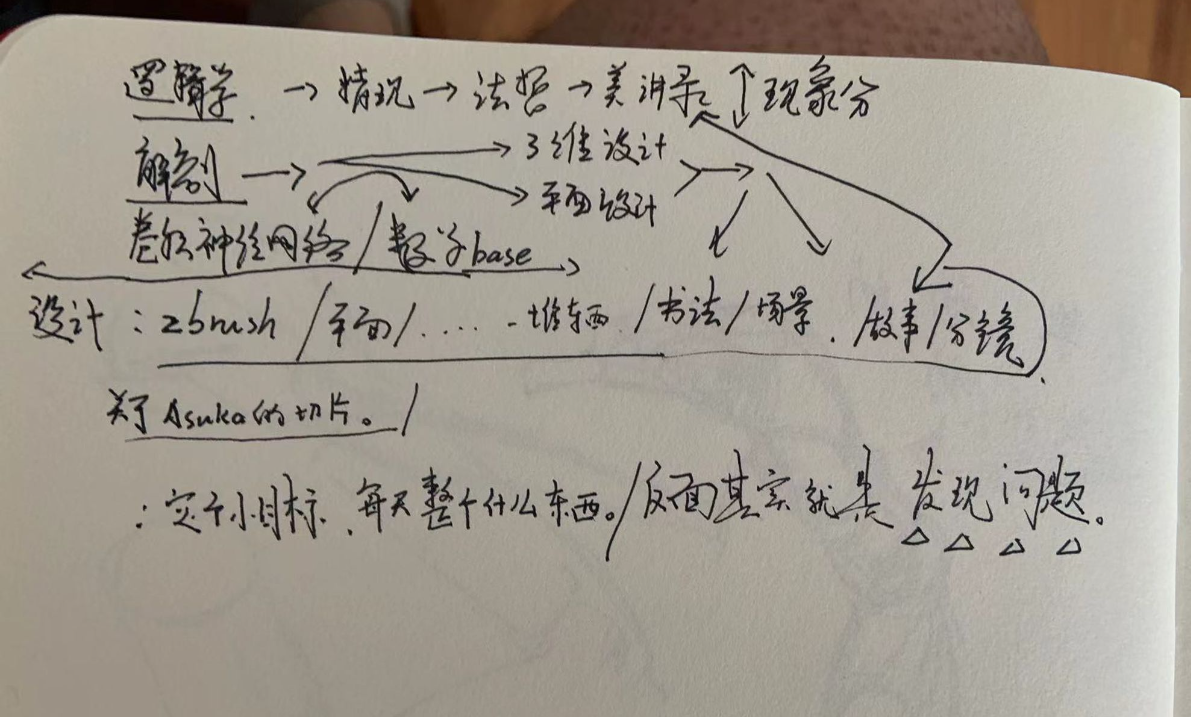 逻辑学. → 精现 → 法哲 → 美讲录 ↕ 现象分
解剖 → 3维设计
平面设计
卷积神经网络 / 数学base
设计：zbrush /平面/..... 一堆东西 /书法/场景. /故事/分镜
关于Asuka的切片。/
：定个小目标、每天整个什么东西。/反面其实就是 发现问题。